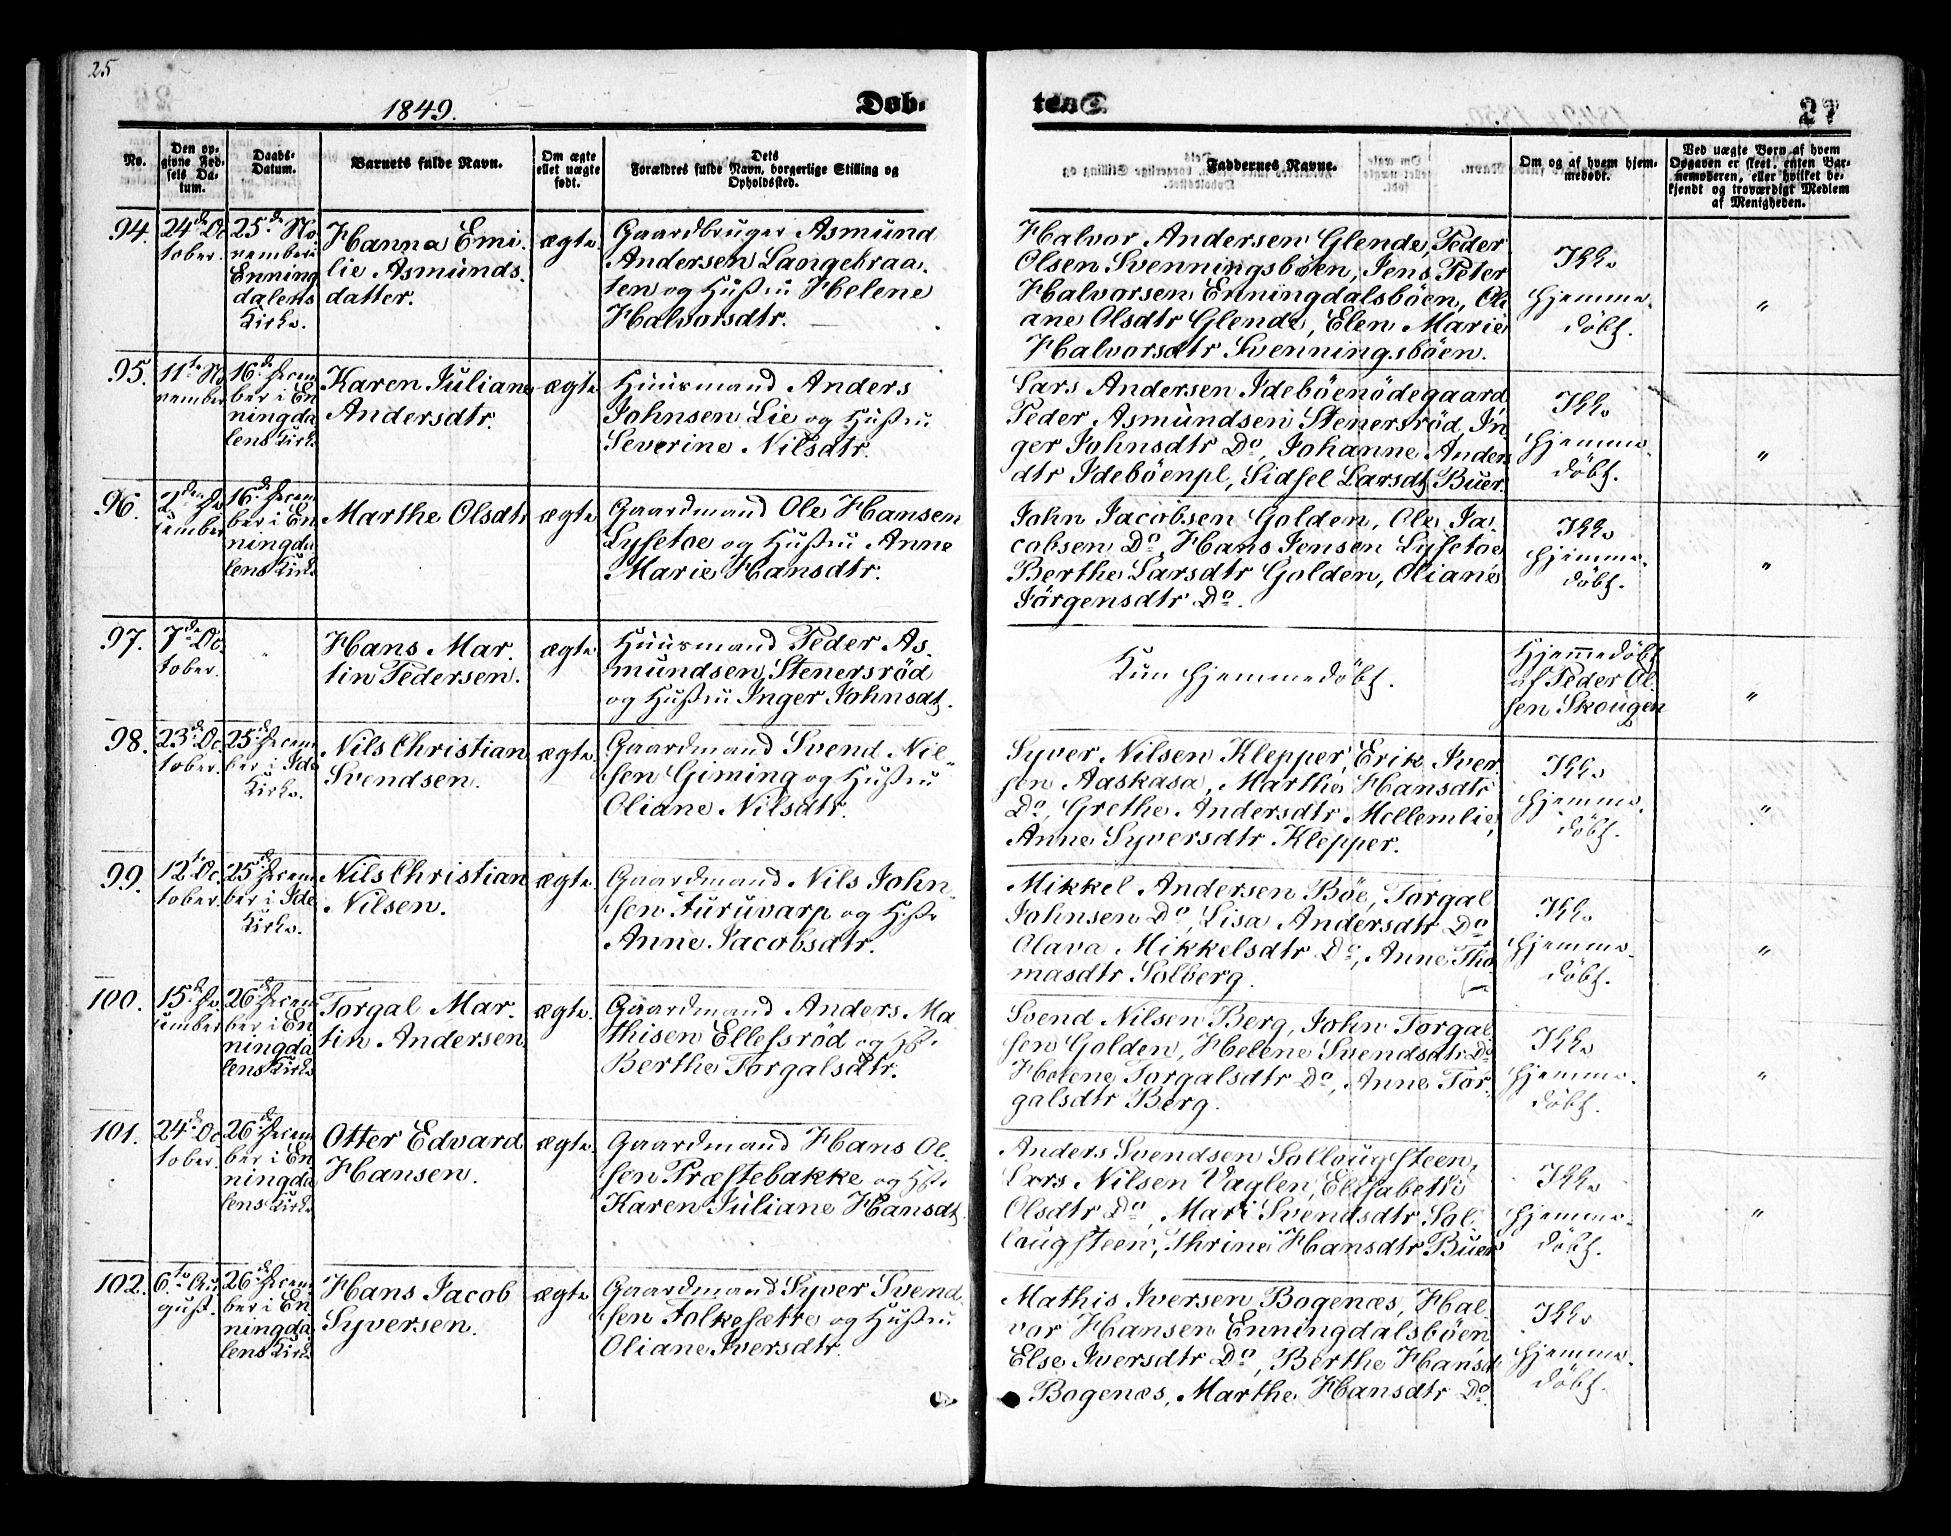 25
1849.
Døb-
te.
27
No.
Den op-
givne Fød-
sels Da-
tum.
Daabs-
Datum.
Barnets fulde Navn.
Om ægte
ellet uægte
født.
Dets
Forældres fulde Navn, borgerlige Stilling og
Opholdsted.
Faddernes Navne.
Om og af hvem hjem-
medøbt.
Ved uægte Børn af hvem
Opgaven er skeet, enten Bar-
nemoderen, eller hvilket be-
kjendt og troværdigt Medlem
af Menigheden.
94.
24de Oc
tober.
25de No
vember i
Enning
dalens
Kirke.
Hanna Emi-
lie Asmunds-
datter.
ægte
Gaardbruger Asmund
Andersen Langebraa-
ten og Hustru Helene
Halvorsdtr.
Halvor Andersen Glende, Peder
Olsen Svenningsböen, Jens Peter
Halvorsen Enningdalsböen, Oli
ane Olsdtr Glende, Elen Marie
Halvorsdtr Svenningsböen.
Ikke
hjemme-
döbt.
"
95.
11te No
vember
16de Decem
ber i En
ningda
lens Kirke
Karen Juliane
Andersdtr.
ægte
Huusmand Anders
Johnsen Lie og Hustru
Severine Nilsdtr.
Lars Andersen Ideböenödegaard
Peder Asmundsen Stenersröd, In
ger Johnsdtr Do, Johanne Anders
dtr Ideböenpl, Sidsel Larsdtr Buer.
Ikke
hjemme-
döbt.
"
96.
2den De
cember
16de Decem
ber i En
ningda
lens Kirke
Marthe Olsdtr
ægte
Gaardmand Ole Hansen
Lysetoe og Hustru Anne
Marie Hansdtr.
John Jacobsen Golden, Ole Ja-
cobsen Do, Hans Jensen Lysetoe
Berthe Larsdtr Golden, Oliane
Jörgensdtr Do.
Ikke
hjemme-
döbt.
"
97.
7de Oc
tober.
"
Hans Mar-
tin Pedersen.
ægte
Huusmand Peder As-
mundsen Stenersröd
og Hustru Inger Johnsdtr.
Kun hjemmedöbt.
Hjemmedöbt
af Peder Ol-
sen Skougen
"
98.
23de Oc
tober.
25de Decem
ber i Ide
Kirke.
Nils Christian
Svendsen.
ægte
Gaardmand Svend Nil-
sen Giming og Hustru
Oliane Nilsdtr.
Syver Nilsen Klepper, Erik Iver
sen Aaskasa, Marthe Hansdtr
Do, Grethe Andersdtr Mellemlie,
Anne Syversdtr Klepper.
Ikke
hjemme-
döbt.
"
99.
12te Oc
tober.
25de Decem
ber i Ide
Kirke.
Nils Christian
Nilsen.
ægte.
Gaardmand Nils John-
sen Furuvarp og Hstr
Anne Jacobsdtr.
Mikkel Andersen Böe, Torgal
Johnsen Do, Lisa Andersdtr Do
Olava Mikkelsdtr Do, Anne Tho
masdtr Solberg.
Ikke
hjemme-
döbt.
"
100.
15de De
cember
26de Decem
ber i En
ningda
lens Kirke
Torgal Mar-
tin Andersen.
ægte.
Gaardmand Anders Ma
thisen Ellefsröd og Hst.
Berthe Torgalsdtr.
Svend Nilsen Berg, John Torgal
sen Golden, Helene Svendsdtr Do
Helene Torgalsdtr Do, Anne Tor-
galsdtr Berg.
Ikke
hjemme-
döbt.
"
101.
24de Oc
tober.
26de Decem
ber i En
ningda
lens Kirke
Otter Edvard
Hansen.
ægte.
Gaardmand Hans Ol-
sen Præstebakke og Hst.
Karen Juliane Hansdtr.
Anders Svendsen Sollougsteen,
Lars Nilsen Vaglen, Elisabeth
Olsdtr Do, Mari Svendsdtr Sol-
lougsteen, Thrine Hansdtr Buer
Ikke
hjemme-
döbt.
"
102.
6te Au
gust.
26de Decem
ber i En
ningda
lens Kirke
Hans Jacob
Syversen.
ægte
Gaardmand Syver Svend-
sen Folkesætre og Hustru
Oliane Iversdtr.
Mathis Iversen Bogenæs, Hal
vor Hansen Enningdalsböen
Else Iversdtr Do, Berthe Hansdtr
Bogenæs, Marthe Hansdtr Do.
Ikke
hjemme-
döbt.